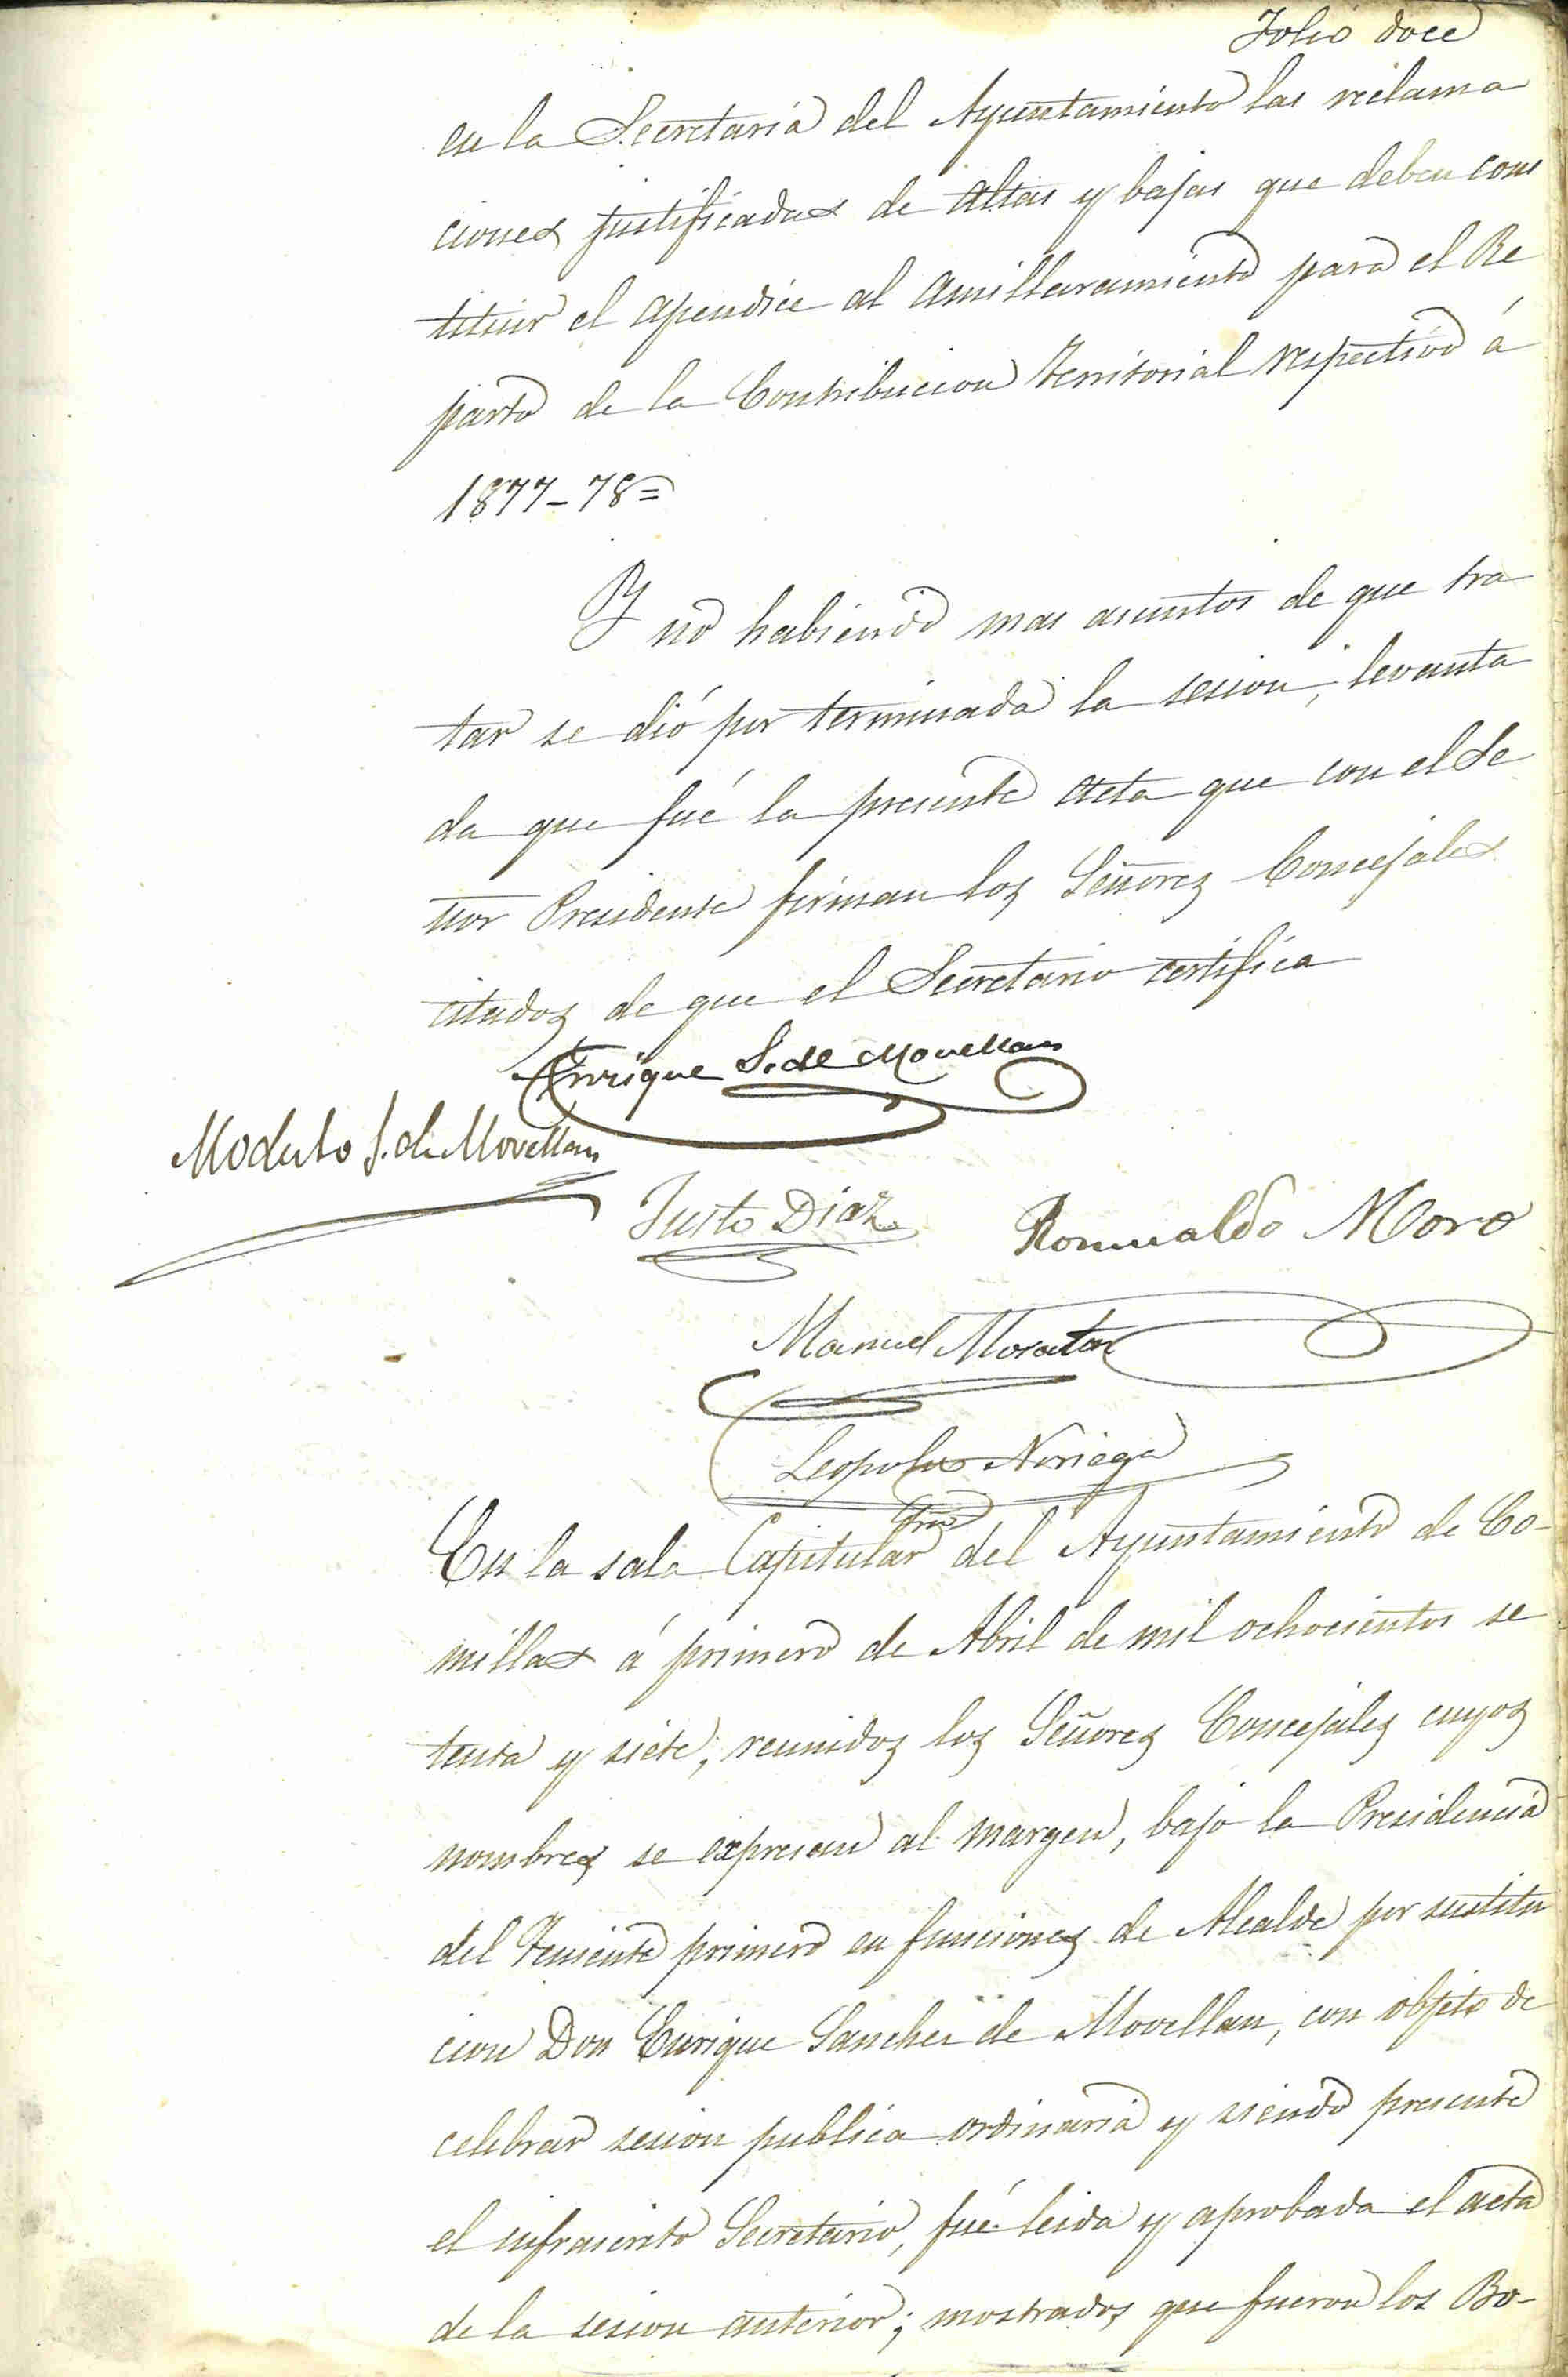 Folio doce
en la Secretaria del Ayuntamiento las reclama
ciones justificadas de altas y bajas que deben cons
tituir el apendice al amillaramiento para el Re
parto de la Contribucion territorial respectivo á
1877-78=
Y no habiendo mas asuntos de que tra
tar se dió por terminada la sesion, levanta
da que fué la presente acta que con el Se
ñor Presidente firman los Señores Concejales
citados de que el Secretario certifica
Enrique S. de Movellan
Modesto S. de Movellan
Justo Diaz
Romualdo Moro
Manuel Moraton
Leopoldo Noriega
Srio
En la sala Capitular del Ayuntamiento de Co-
millas á primero de Abril de mil ochocientos se
tenta y siete; reunidos los Señores Concejales cuyos
nombres se expresan al margen, bajo la Presidencia
del Teniente primero en funciones de Alcalde por sustitu
cion Don Enrique Sanchez de Movellan, con objeto de
celebrar sesion publica ordinaria y siendo presente
el infrascrito Secretario, fué leida y aprobada el acta
de la sesion anterior; mostrados que fueron los Bo-